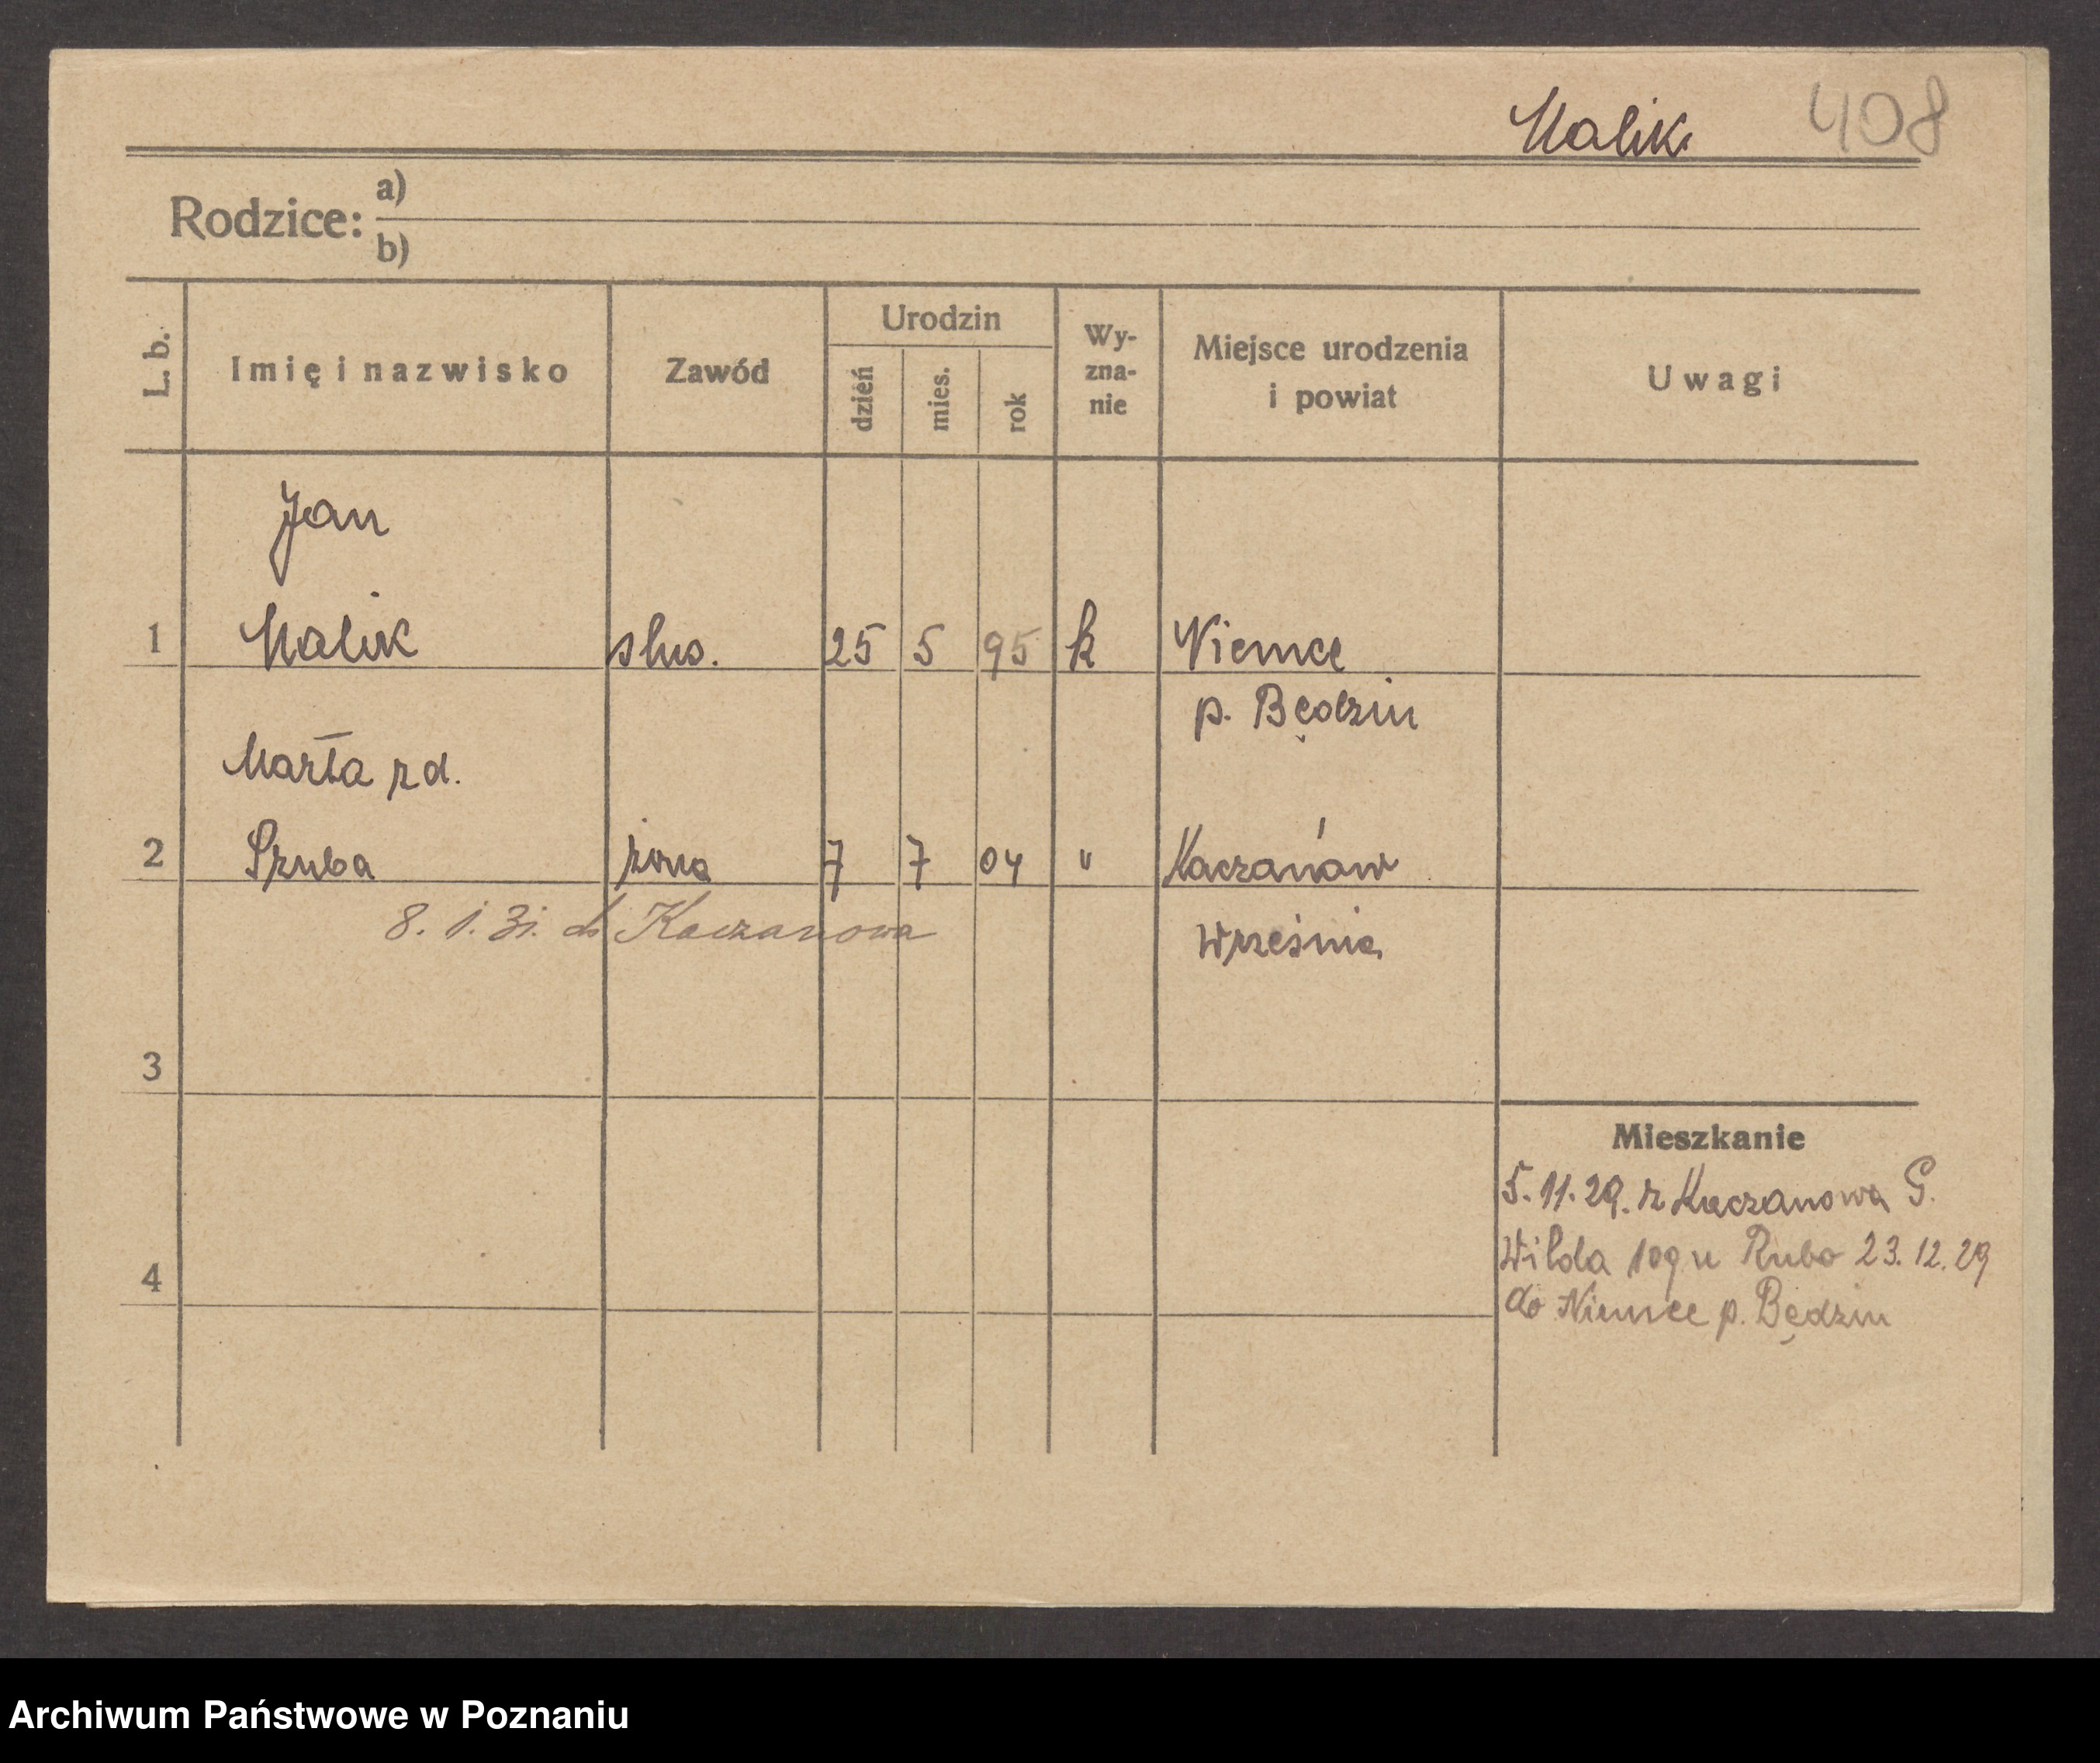 Malik 408
Rodzice: a)
b)
L. b. Imię i nazwisko Zawód Urodzin dzień mies. rok Wy-zna-nie Miejsce urodzenia i powiat Uwagi
Jan
1 Malik ślus. 25 5 95 k Niemce
p. Będzin
Marta zd.
2 Szuba żona 7 7 04 " Kaczanów
8. 1. 31. do Kaczanowa Września
3
Mieszkanie
5. 11. 29. z Kaczanowa G.
Wilda 109 u 23. 12. 29
4
do Niemce p. Będzin
Archiwum Państwowe w Poznaniu